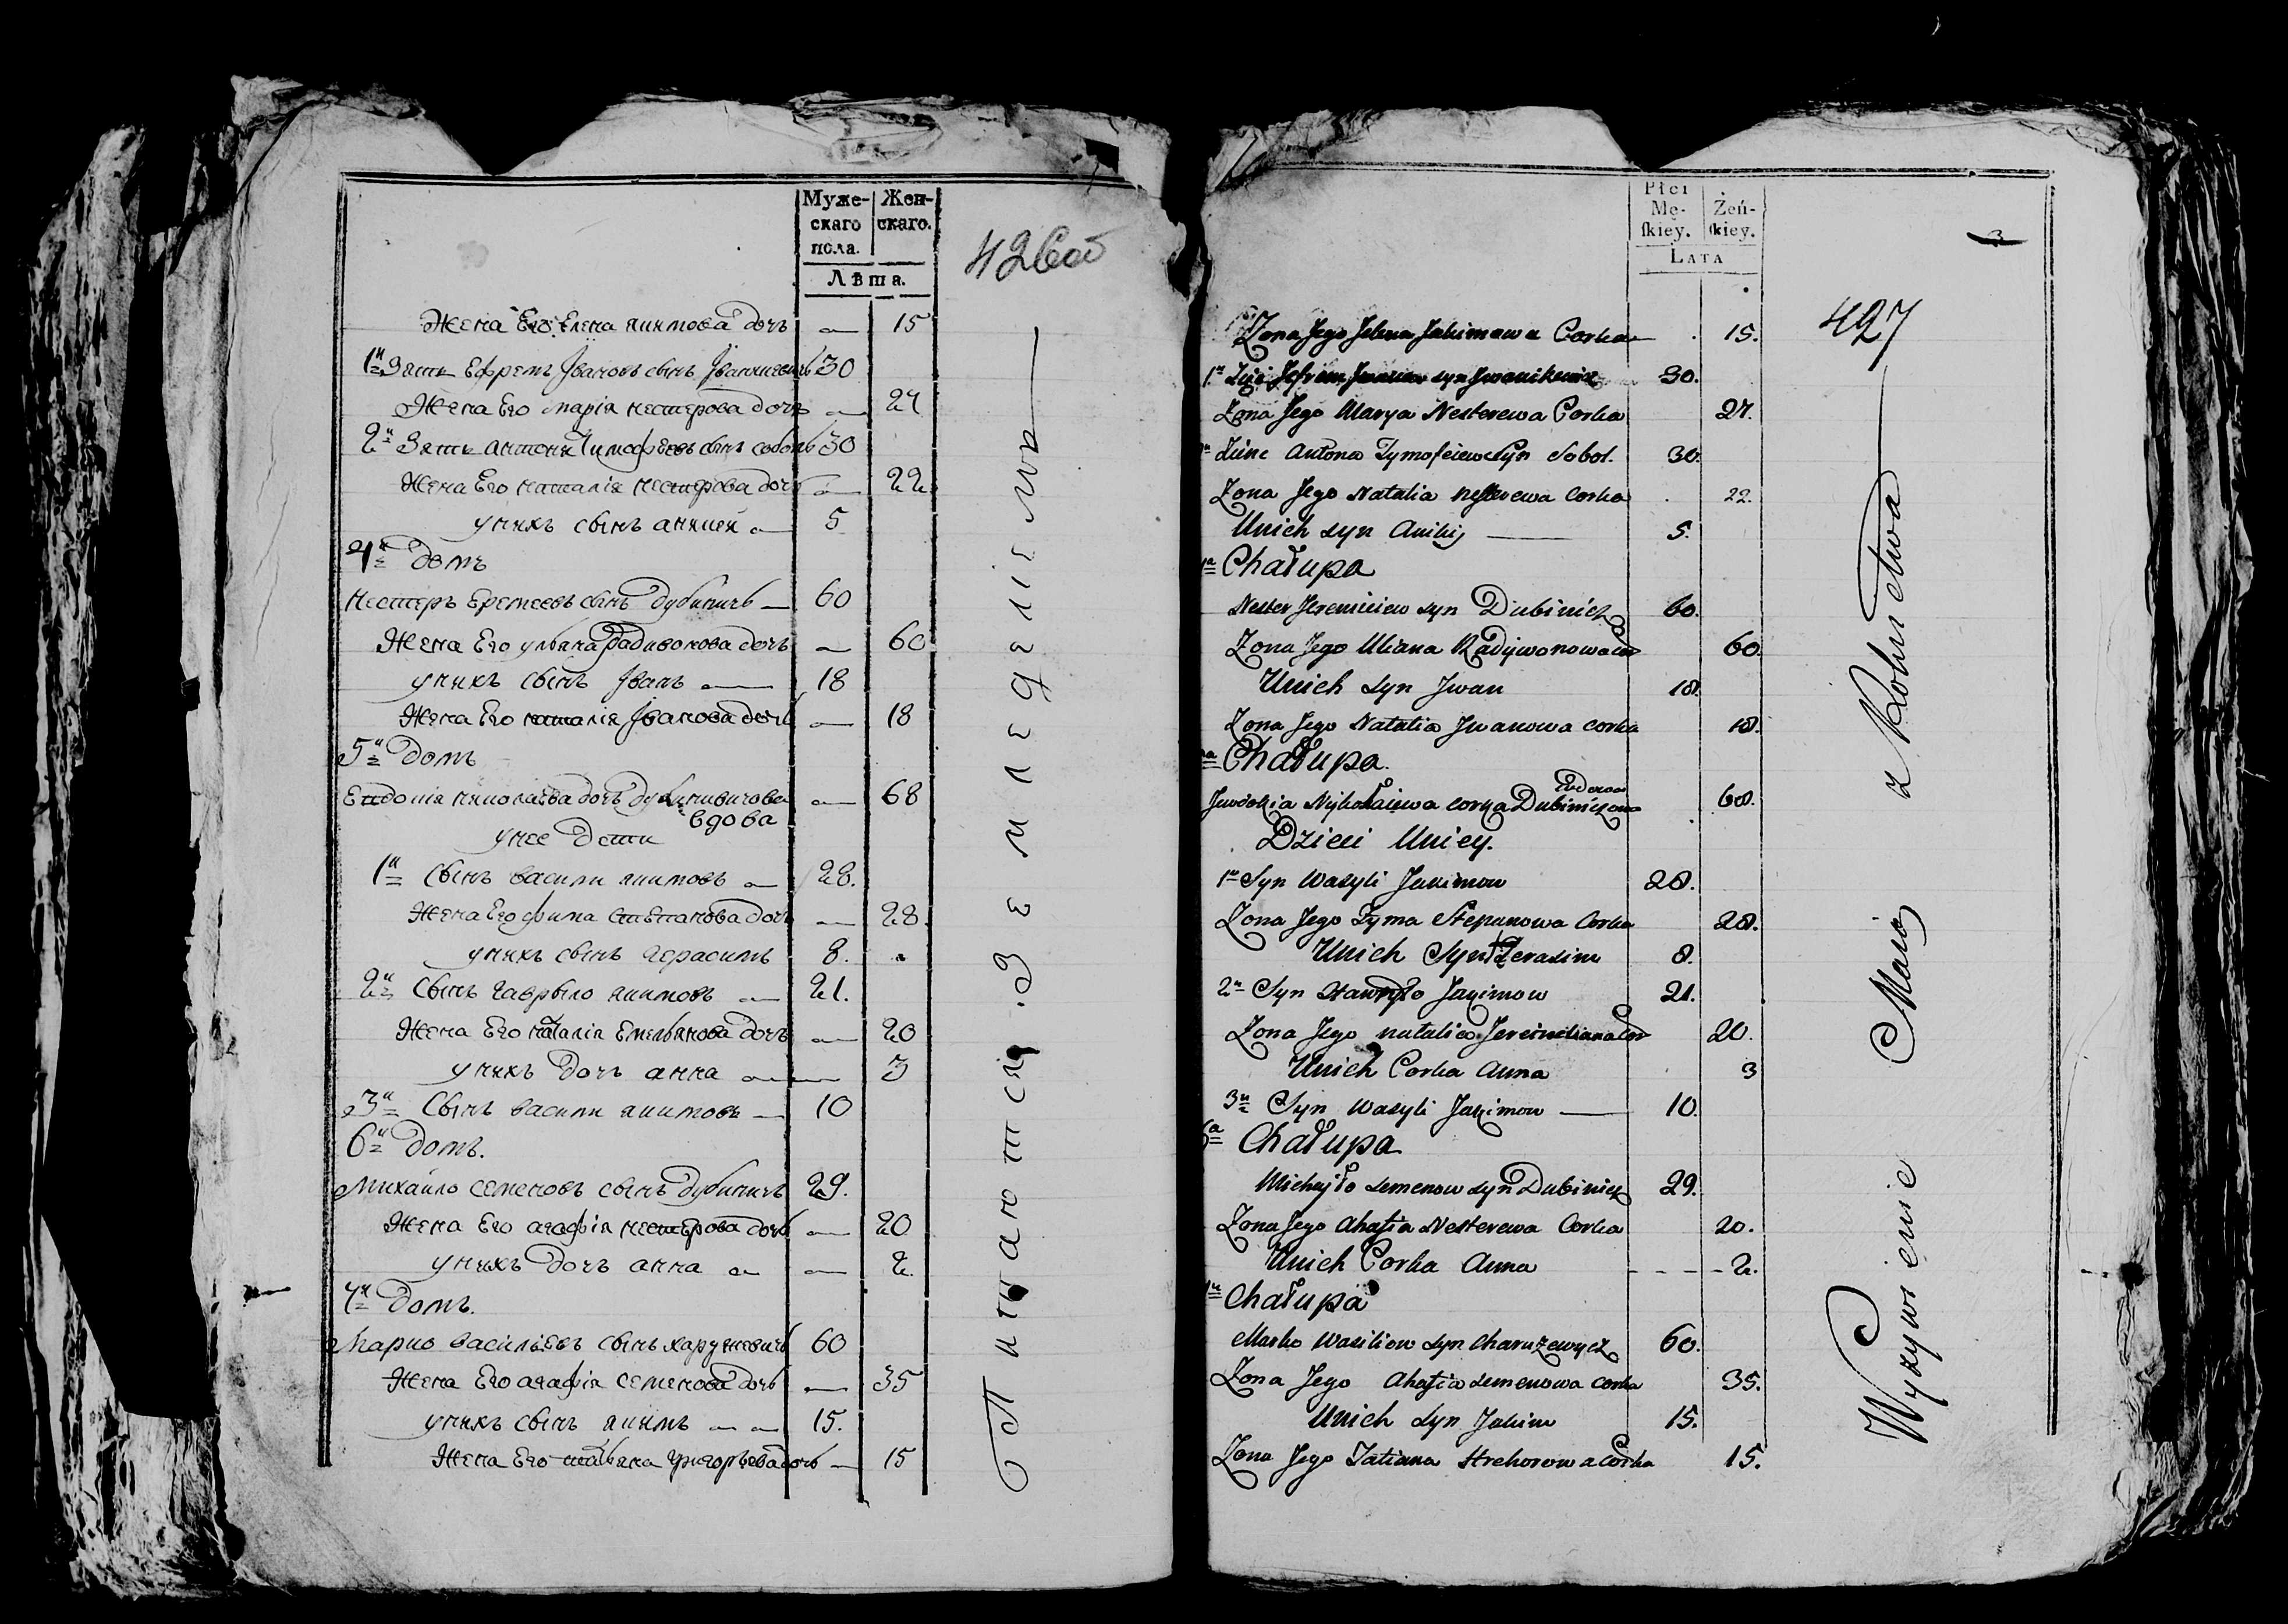 Муже-
скаго
пола.
Жен-
скаго.
Лѣта.
426об
Жена Его Елена якимова дочь — 15
1й Зять Ефремъ Ивановъ сынъ Иванкевичь 30
Жена Его марія нестерова дочь — 27
2й Зять антонъ Тимофѣевъ сынъ соболь 30
Жена Его наталія нестерова дочь — 22
уних сынъ аникей — 5
4й домъ
Нестеръ Еремеевъ сынъ Дубиничь — 60
Жена Его ульяна Радивонова дочь — 60
унихъ сынъ Иванъ — 18
Жена Его наталія Иванова дочь — 18
5й домъ
Евдокія николаева дочь дубиничова — 68
вдова
унее дети
1й Сынъ василий якимовъ — 28.
Жена Его фима степанова дочь — 28.
унихъ сынъ герасимъ 8.
2й Сынъ гаврыло якимовъ — 21.
Жена Его наталія Емельянова дочь — 20
унихъ дочь анна — 3
3й Сынъ василий якимовъ — 10
6й домъ.
Михайло семеновъ сынъ дубиничь 29.
Жена Его агафія нестерова дочь — 20
унихъ дочь анна — — 2.
7й домъ.
Марко васильевъ сынъ харужевичь 60
Жена Его агафія семенова дочь — 35
унихъ сынъ якимъ — — 15.
Жена Его татьяна григорьева дочь — 15
Питаются Земледелиемъ
Płci
Mę-
skiey.
Żeń-
skiey.
LATA
3
427
Zona Jego Jelena Jakimowa Corka 15.
1n Zięć Jefrem Iwanow syn Jwanikewicz 30.
Zona Jego Marya Nesterewa Corka 27.
Zienc Antono Tymofeiew Syn Sobol. 30.
Zona Jego Natalia nesterewa Corka 22.
Unich syn Anikij — 5.
Chałupa
Nester Jeremieiew syn Dubinicz 60.
Zona Jego Uliana Radywonowa Cor 60.
Unich syn Jwan 18.
Zona Jego Natalia Jwanowa corka 18.
Chałupa.
Jewdokia Nykołaiewa corka Dubiniczowa 68.
Wdowa
Dzieci Uniey.
1n Syn Wasyli Jakimow 28.
Zona Jego Fyma Stepanowa Corka 28.
Unich Syn Herasim 8.
2n Syn Hawryło Jakimow 21.
Zona Jego natalia Jemeliana Cor 20.
Unich Corka Anna 3
3n Syn Wasyli Jakimow — 10.
6a Chałupa
Michajło semenow syn Dubinicz 29.
Zona Jego Ahafia Nesterewa Corka 20.
Unich Corka Anna - - - - 2.
Chałupa
Marko Wasiliow syn Charużewycz 60.
Zona Jego Ahafia semenowa corka 35.
Unich syn Jakim 15.
Zona Jego Tatiana Hrehorowa Corka 15.
Wyzywienie Maią z Rolnictwa